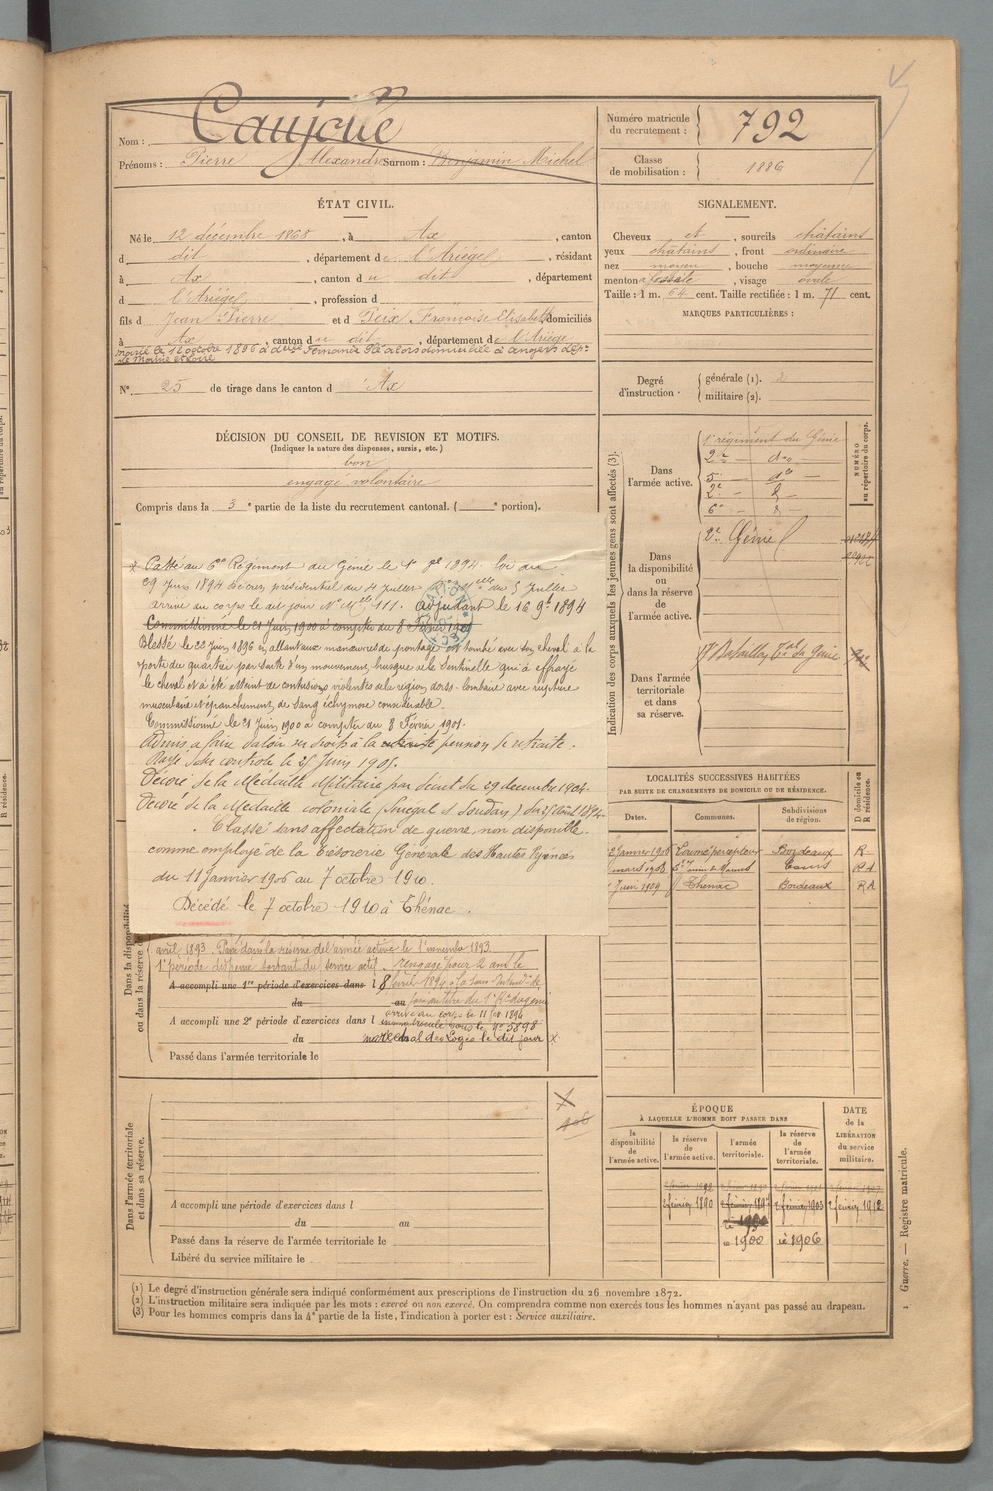 Nom : Caujolle
Prénoms : Pierre Alexandre Surnom : Benjamin Michel
Numéro matricule du recrutement : 792
Classe de mobilisation : 1886
ÉTAT CIVIL.
Né le 12 décembre 1868, à Ax, canton
d dit, département de l'Ariège, résidant
à Ax, canton du dit, département
d l'Ariège, profession d
fils d Jean Pierre et d Françoise Elisabeth domiciliés
à Ax, canton du dit, département de l'Ariège
marié le 12 octobre 1896 à domiciliée à Angers dép.t
de Maine et Loire
N° 25 de tirage dans le canton d Ax
SIGNALEMENT.
Cheveux et, sourcils châtains
yeux châtains, front ordinaire
nez moyen, bouche moyenne
menton à fossette, visage ovale
Taille : 1 m. 64 cent. Taille rectifiée : 1 m. 71 cent.
MARQUES PARTICULIÈRES :
Degré d'instruction
générale (1). 2
militaire (2).
DÉCISION DU CONSEIL DE REVISION ET MOTIFS.
(Indiquer la nature des dispenses, sursis, etc.)
bon
engagé volontaire
Compris dans la 3e partie de la liste du recrutement cantonal. ( e portion).
x Passé au 6e Régiment du Génie le 1er 1894. Loi du
29 Juin 1894 Décret présidentiel du 4 Juillet du 5 Juillet
arrivé au corps le dit jour N° Mle 111. adjudant le 16 9bre 1894
Commissionné le 21 Juin 1900 à compter du 8 Février 1901
Blessé le 22 Juin 1896 en allant aux manœuvres de pontage est tombé avec son cheval à la
porte du quartier par suite d'un mouvement brusque de la sentinelle qui a effrayé
le cheval et a été atteint de contusions violentes de la région dorso-lombaire avec rupture
musculaire et épanchement de sang échymose considérable.
Commissionné le 21 Juin 1900 à compter du 8 Février 1901.
Admis à faire valoir ses droits à la retraite pension de retraite.
Rayé des contrôles le 25 Juin 1905.
Décoré de la Médaille Militaire par décret du 29 décembre 1904.
Décoré de la Médaille coloniale (Sénégal et Soudan)
Classé sans affectation de guerre, non disponible.
comme employé de la Trésorerie Générale des Hautes Pyrénées
du 11 Janvier 1906 au 7 octobre 1910.
Décédé le 7 octobre 1910 à Thénac.
Dans la disponibilité ou dans la réserve de
avril 1893. Passé dans la réserve de l'armée active le 1er novembre 1893.
1re période dispensé sortant du service actif. rengagé pour 2 ans le
A accompli une 1re période d'exercices dans l 8 février 1894
du au
arrivé au corps le 11 1894
A accompli une 2e période d'exercices dans l immatriculé sous le N° 5898
du maréchal des Logis le dit jour x
Passé dans l'armée territoriale le
Dans l'armée territoriale et dans sa réserve.
A accompli une période d'exercices dans l
du au
Passé dans la réserve de l'armée territoriale le
Libéré du service militaire le
Indication des corps auxquels les jeunes gens sont affectés (3).
NUMÉRO au répertoire du corps.
Dans l'armée active.
1er régiment du Génie
2e — do —
5e — do —
2e — d —
6e — d —
Dans la disponibilité ou dans la réserve de l'armée active.
2e Génie
Dans l'armée territoriale et dans sa réserve.
17e Bataillon T.al du Génie
LOCALITÉS SUCCESSIVES HABITÉES
PAR SUITE DE CHANGEMENTS DE DOMICILE OU DE RÉSIDENCE.
Dates. Communes. Subdivisions de région. D domicile ou R résidence.
2 Janvier 1906 percepteur Bordeaux R
mars 1908 Tours RA
Juin 1909 Thénac Bordeaux RA
ÉPOQUE
À LAQUELLE L'HOMME DOIT PASSER DANS
la disponibilité de l'armée active.
la réserve de l'armée active.
l'armée territoriale.
la réserve de l'armée territoriale.
DATE de la LIBÉRATION du service militaire.
2 février 1890 2 février 1897 2 février 1903 2 février 1912
le 1900 le 1906
(1) Le degré d'instruction générale sera indiqué conformément aux prescriptions de l'instruction du 26 novembre 1872.
(2) L'instruction militaire sera indiquée par les mots : exercé ou non exercé. On comprendra comme non exercés tous les hommes n'ayant pas passé au drapeau.
(3) Pour les hommes compris dans la 4e partie de la liste, l'indication à porter est : Service auxiliaire.
1 Guerre. — Registre matricule.